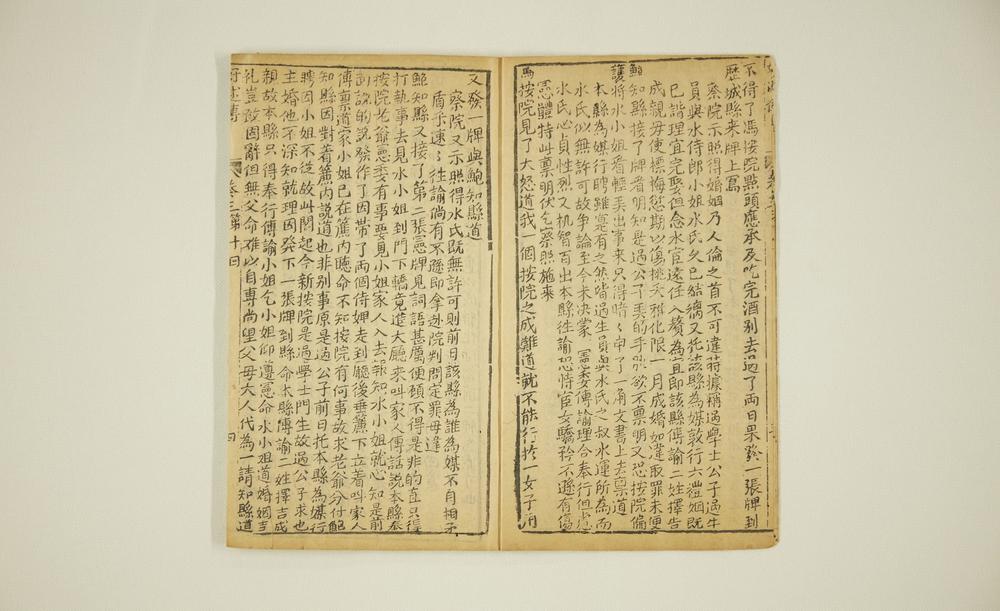 不得了馮按院點頭應承及吃完酒别去過了兩日果發一張牌到
歷城縣来牌上寫
察院示照得婚姻乃人倫之首不可違時據稱過學士公子過生
員與水侍郎小姐水氏久已結縭又托該縣為媒敦行六禮姻既
已諧理宜完娶但念水官遠任入贅為宜即該縣傳諭二姓擇吉
成親毋使摽梅愆期以傷桃夭雅化限一月成婚如違取罪未便
鮑知縣接了牌看明知是過公子弄的手脚欲不禀明又恐按院偏
護将水小姐看輕弄出事来只得暗〻申了一角文書上去禀道
本縣為媒行聘雖實有之然皆過生員與水氏之叔水運所為而
水氏似無許可故争論至今未决蒙 憲委傳諭理合奉行但慮
水氏心貞性烈又机智百出本縣徃諭恐恃官女驕矜不遜有傷
憲體特此禀明伏乞察照施来
馮按院見了大怒道我一個按院之威難道就不能行於一女子因
又發一牌與鮑知縣道
察院又示照得水氏既無許可則前日該縣為誰為媒不自相矛
盾乎速〻徃諭倘有不遜即拿赴院判問定罪毋違
鮑知縣又接了第二張憲牌見詞語甚厲便顧不得是非的直只得
打執事去見水小姐到門下轎竟進大廳来叫家人傳話說本縣奉
按院老爺憲委有事要見小姐家人入去報知水小姐就心知是前
說的說發作了因帶了兩個侍婢走到廳後垂簾下立着叫家人
傳禀道家小姐已在簾内聽命不知按院有何事故求老爺分付鮑
知縣因對着簾内說道也非别事原是過公子前日托本縣為媒行
聘因小姐不從故此閣起今新按院是過學士門生故過公子求他
主婚他不深知就理因發下一張牌到縣命本縣傳諭二姓擇吉成
親故本縣只得奉行傳諭小姐乞小姐仰遵憲命水小姐道婚姻吉
礼豈敢固辭但無父命难以自專尚望父母大人代為一請知縣道
卷三第十回
四